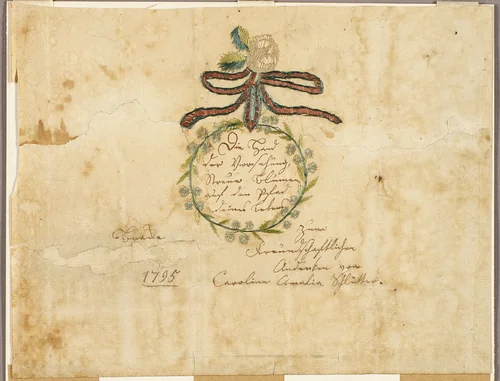 Die Hand
der Vorsehung
Streue Blumen
auf den Pfad
deines Lebens
Zum
Freundschaftlichen
Andenken von
Carolina Amalia Schlutter.
1795